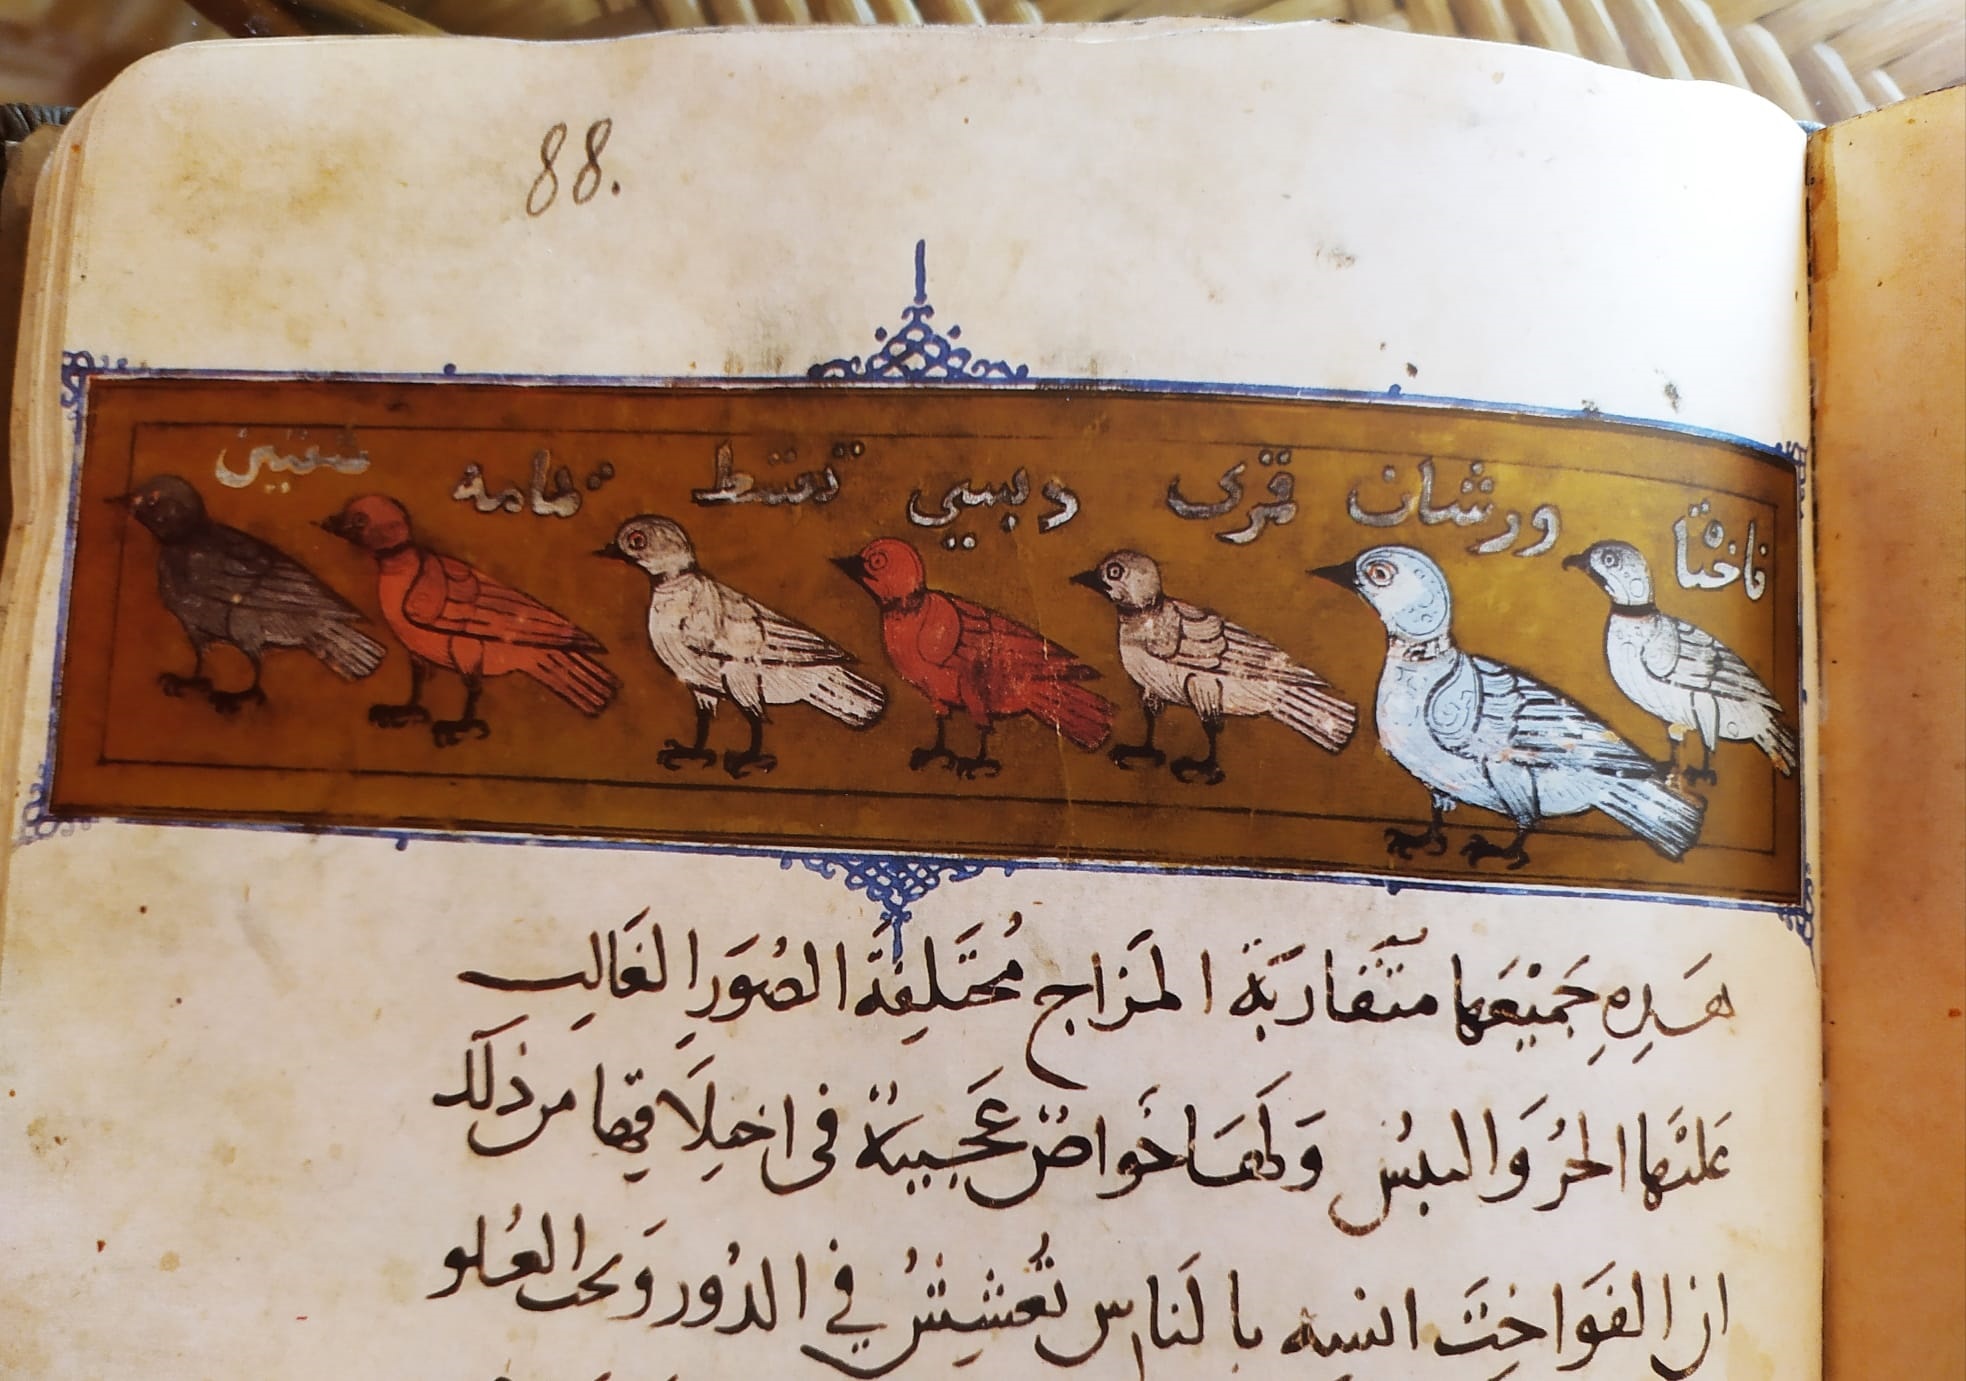 88.
فاختة ورشان قمري دبسي تقسط يمامه شفنين
هَذِهِ جَمِيْعَهَا متَقَارَبَة المَزَاج مُختَلِفَة الصُوَرِ الغَالِب
عَليَهَا الحَرُ وَاليبُس وَلَهَا خَواصٌ عَجيبةٌ فى اختِلَافِها من ذلك
ان الفَوَاخِتَ انسيه بالنَاس تُعَشِشُ في الدُور وَتحت العُلو